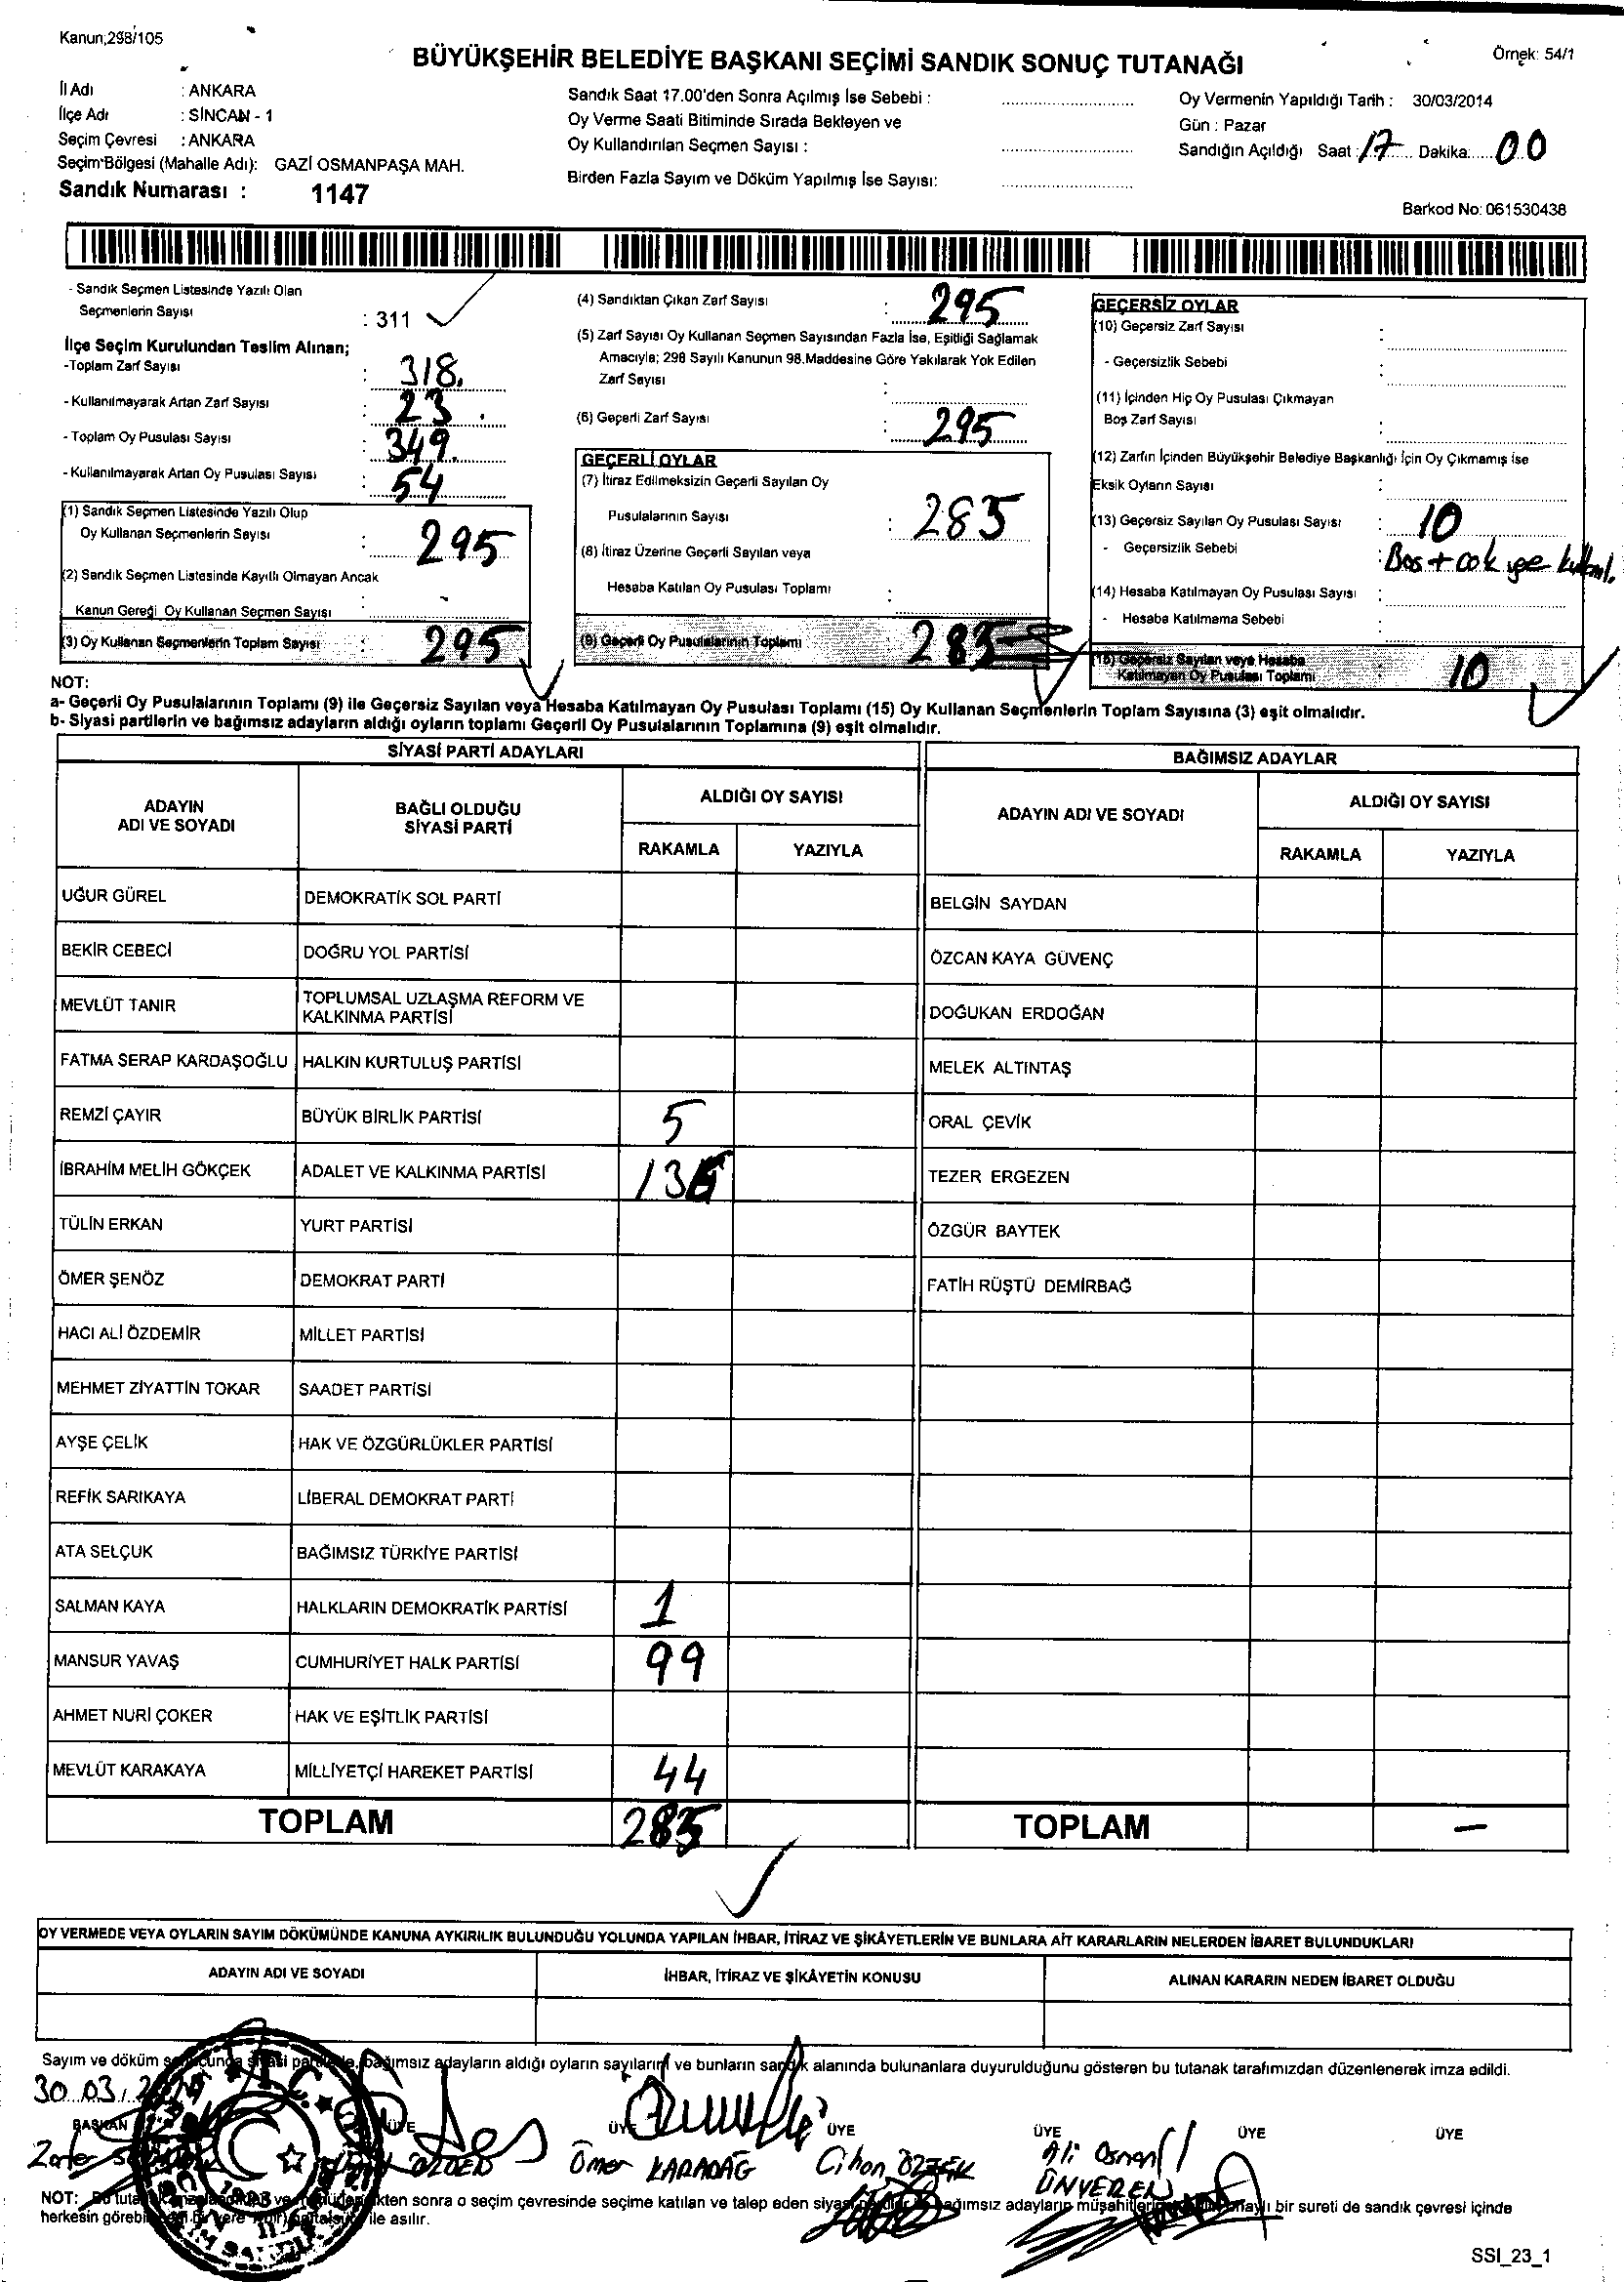 Kanun;298/105
BÜYÜKŞEHİR BELEDİYE BAŞKANI SEÇİMİ SANDIK SONUÇ TUTANAĞI
Örnek: 54/1
İl Adı : ANKARA
İlçe Adı : SİNCAN - 1
Seçim Çevresi : ANKARA
Seçim Bölgesi (Mahalle Adı): GAZİ OSMANPAŞA MAH.
Sandık Numarası : 1147
Sandık Saat 17.00'den Sonra Açılmış İse Sebebi :
Oy Verme Saati Bitiminde Sırada Bekleyen ve
Oy Kullandırılan Seçmen Sayısı :
Birden Fazla Sayım ve Döküm Yapılmış İse Sayısı:
Oy Vermenin Yapıldığı Tarih : 30/03/2014
Gün : Pazar
Sandığın Açıldığı Saat : 17 Dakika: 00
Barkod No: 061530438
- Sandık Seçmen Listesinde Yazılı Olan
Seçmenlerin Sayısı : 311
İlçe Seçim Kurulundan Teslim Alınan;
-Toplam Zarf Sayısı : 318
- Kullanılmayarak Artan Zarf Sayısı : 23
- Toplam Oy Pusulası Sayısı : 349
- Kullanılmayarak Artan Oy Pusulası Sayısı : 54
(1) Sandık Seçmen Listesinde Yazılı Olup
Oy Kullanan Seçmenlerin Sayısı : 295
(2) Sandık Seçmen Listesinde Kayıtlı Olmayan Ancak
Kanun Gereği Oy Kullanan Seçmen Sayısı : -
(3) Oy Kullanan Seçmenlerin Toplam Sayısı : 295
(4) Sandıktan Çıkan Zarf Sayısı : 295
(5) Zarf Sayısı Oy Kullanan Seçmen Sayısından Fazla İse, Eşitliği Sağlamak
Amacıyla; 298 Sayılı Kanunun 98.Maddesine Göre Yakılarak Yok Edilen
Zarf Sayısı :
(6) Geçerli Zarf Sayısı : 295
GEÇERLİ OYLAR
(7) İtiraz Edilmeksizin Geçerli Sayılan Oy
Pusulalarının Sayısı : 285
(8) İtiraz Üzerine Geçerli Sayılan veya
Hesaba Katılan Oy Pusulası Toplamı :
(9) Geçerli Oy Pusulalarının Toplamı 285
GEÇERSİZ OYLAR
(10) Geçersiz Zarf Sayısı :
- Geçersizlik Sebebi :
(11) İçinden Hiç Oy Pusulası Çıkmayan
Boş Zarf Sayısı :
(12) Zarfın İçinden Büyükşehir Belediye Başkanlığı İçin Oy Çıkmamış ise
Eksik Oyların Sayısı :
(13) Geçersiz Sayılan Oy Pusulası Sayısı : 10
- Geçersizlik Sebebi : Boş + çok
(14) Hesaba Katılmayan Oy Pusulası Sayısı :
- Hesaba Katılmama Sebebi :
(15) Geçersiz Sayılan veya Hesaba
Katılmayan Oy Pusulası Toplamı 10
NOT:
a- Geçerli Oy Pusulalarının Toplamı (9) ile Geçersiz Sayılan veya Hesaba Katılmayan Oy Pusulası Toplamı (15) Oy Kullanan Seçmenlerin Toplam Sayısına (3) eşit olmalıdır.
b- Siyasi partilerin ve bağımsız adayların aldığı oyların toplamı Geçerli Oy Pusulalarının Toplamına (9) eşit olmalıdır.
SİYASİ PARTİ ADAYLARI
BAĞIMSIZ ADAYLAR
ADAYIN ADI VE SOYADI
BAĞLI OLDUĞU SİYASİ PARTİ
ALDIĞI OY SAYISI
RAKAMLA YAZIYLA
ADAYIN ADI VE SOYADI
ALDIĞI OY SAYISI
RAKAMLA YAZIYLA
UĞUR GÜREL DEMOKRATİK SOL PARTİ BELGİN SAYDAN
BEKİR CEBECİ DOĞRU YOL PARTİSİ ÖZCAN KAYA GÜVENÇ
MEVLÜT TANIR TOPLUMSAL UZLAŞMA REFORM VE KALKINMA PARTİSİ DOĞUKAN ERDOĞAN
FATMA SERAP KARDAŞOĞLU HALKIN KURTULUŞ PARTİSİ MELEK ALTINTAŞ
REMZİ ÇAYIR BÜYÜK BİRLİK PARTİSİ 5 ORAL ÇEVİK
İBRAHİM MELİH GÖKÇEK ADALET VE KALKINMA PARTİSİ 136 TEZER ERGEZEN
TÜLİN ERKAN YURT PARTİSİ ÖZGÜR BAYTEK
ÖMER ŞENÖZ DEMOKRAT PARTİ FATİH RÜŞTÜ DEMİRBAĞ
HACI ALİ ÖZDEMİR MİLLET PARTİSİ
MEHMET ZİYATTİN TOKAR SAADET PARTİSİ
AYŞE ÇELİK HAK VE ÖZGÜRLÜKLER PARTİSİ
REFİK SARIKAYA LİBERAL DEMOKRAT PARTİ
ATA SELÇUK BAĞIMSIZ TÜRKİYE PARTİSİ
SALMAN KAYA HALKLARIN DEMOKRATİK PARTİSİ 1
MANSUR YAVAŞ CUMHURİYET HALK PARTİSİ 99
AHMET NURİ ÇOKER HAK VE EŞİTLİK PARTİSİ
MEVLÜT KARAKAYA MİLLİYETÇİ HAREKET PARTİSİ 44
TOPLAM 285 TOPLAM -
OY VERMEDE VEYA OYLARIN SAYIM DÖKÜMÜNDE KANUNA AYKIRILIK BULUNDUĞU YOLUNDA YAPILAN İHBAR, İTİRAZ VE ŞİKÂYETLERİN VE BUNLARA AİT KARARLARIN NELERDEN İBARET BULUNDUKLARI
ADAYIN ADI VE SOYADI İHBAR, İTİRAZ VE ŞİKÂYETİN KONUSU ALINAN KARARIN NEDEN İBARET OLDUĞU
Sayım ve döküm sonucunda siyasi partilerle, bağımsız adayların aldığı oyların sayılarını ve bunların sandık alanında bulunanlara duyurulduğunu gösteren bu tutanak tarafımızdan düzenlenerek imza edildi.
30.03.
BAŞKAN ÜYE ÜYE ÜYE ÜYE ÜYE ÜYE
Zafer Ömer KARADAĞ Cihan Ali Osman ÜNVEREN
NOT: Bu tutanak sonra o seçim çevresinde seçime katılan ve talep eden siyasi bağımsız adayların müşahitlerine bir sureti de sandık çevresi içinde
herkesin ile asılır.
SSI_23_1